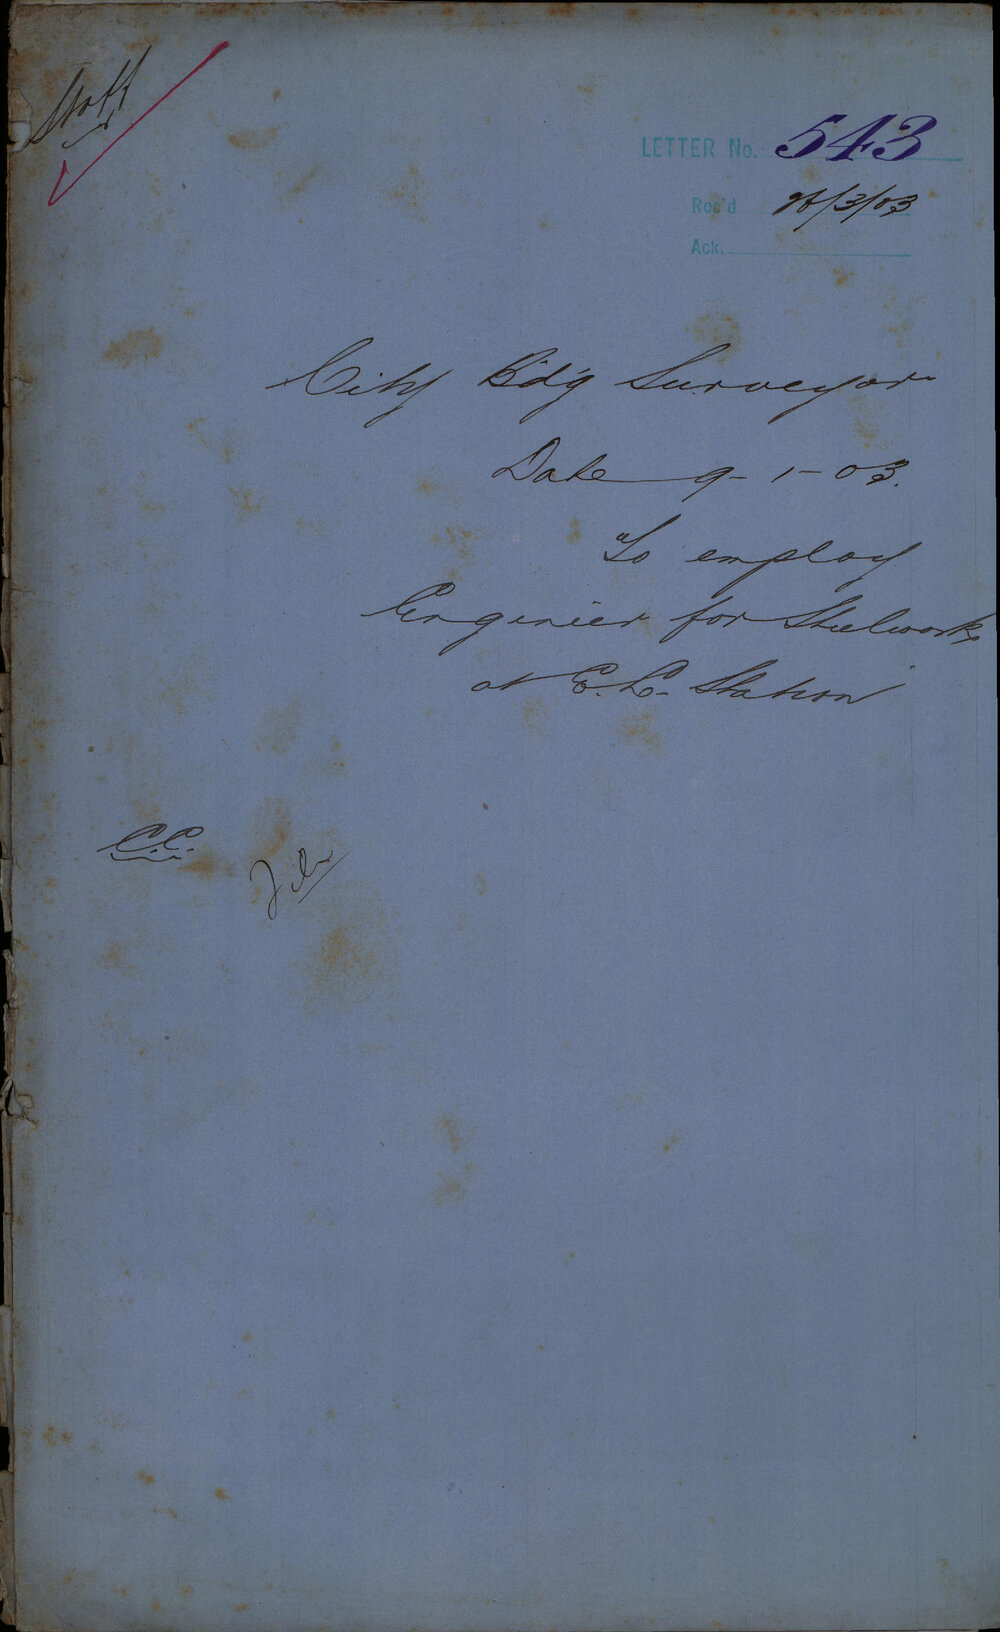 Staff
LETTER No. 543
Rec'd 26/3/03
Ack.
City Bd'g Surveyor
Date 9-1-03.
To employ
Engineer for Steelwork
at E. L. Station
C.C.
File